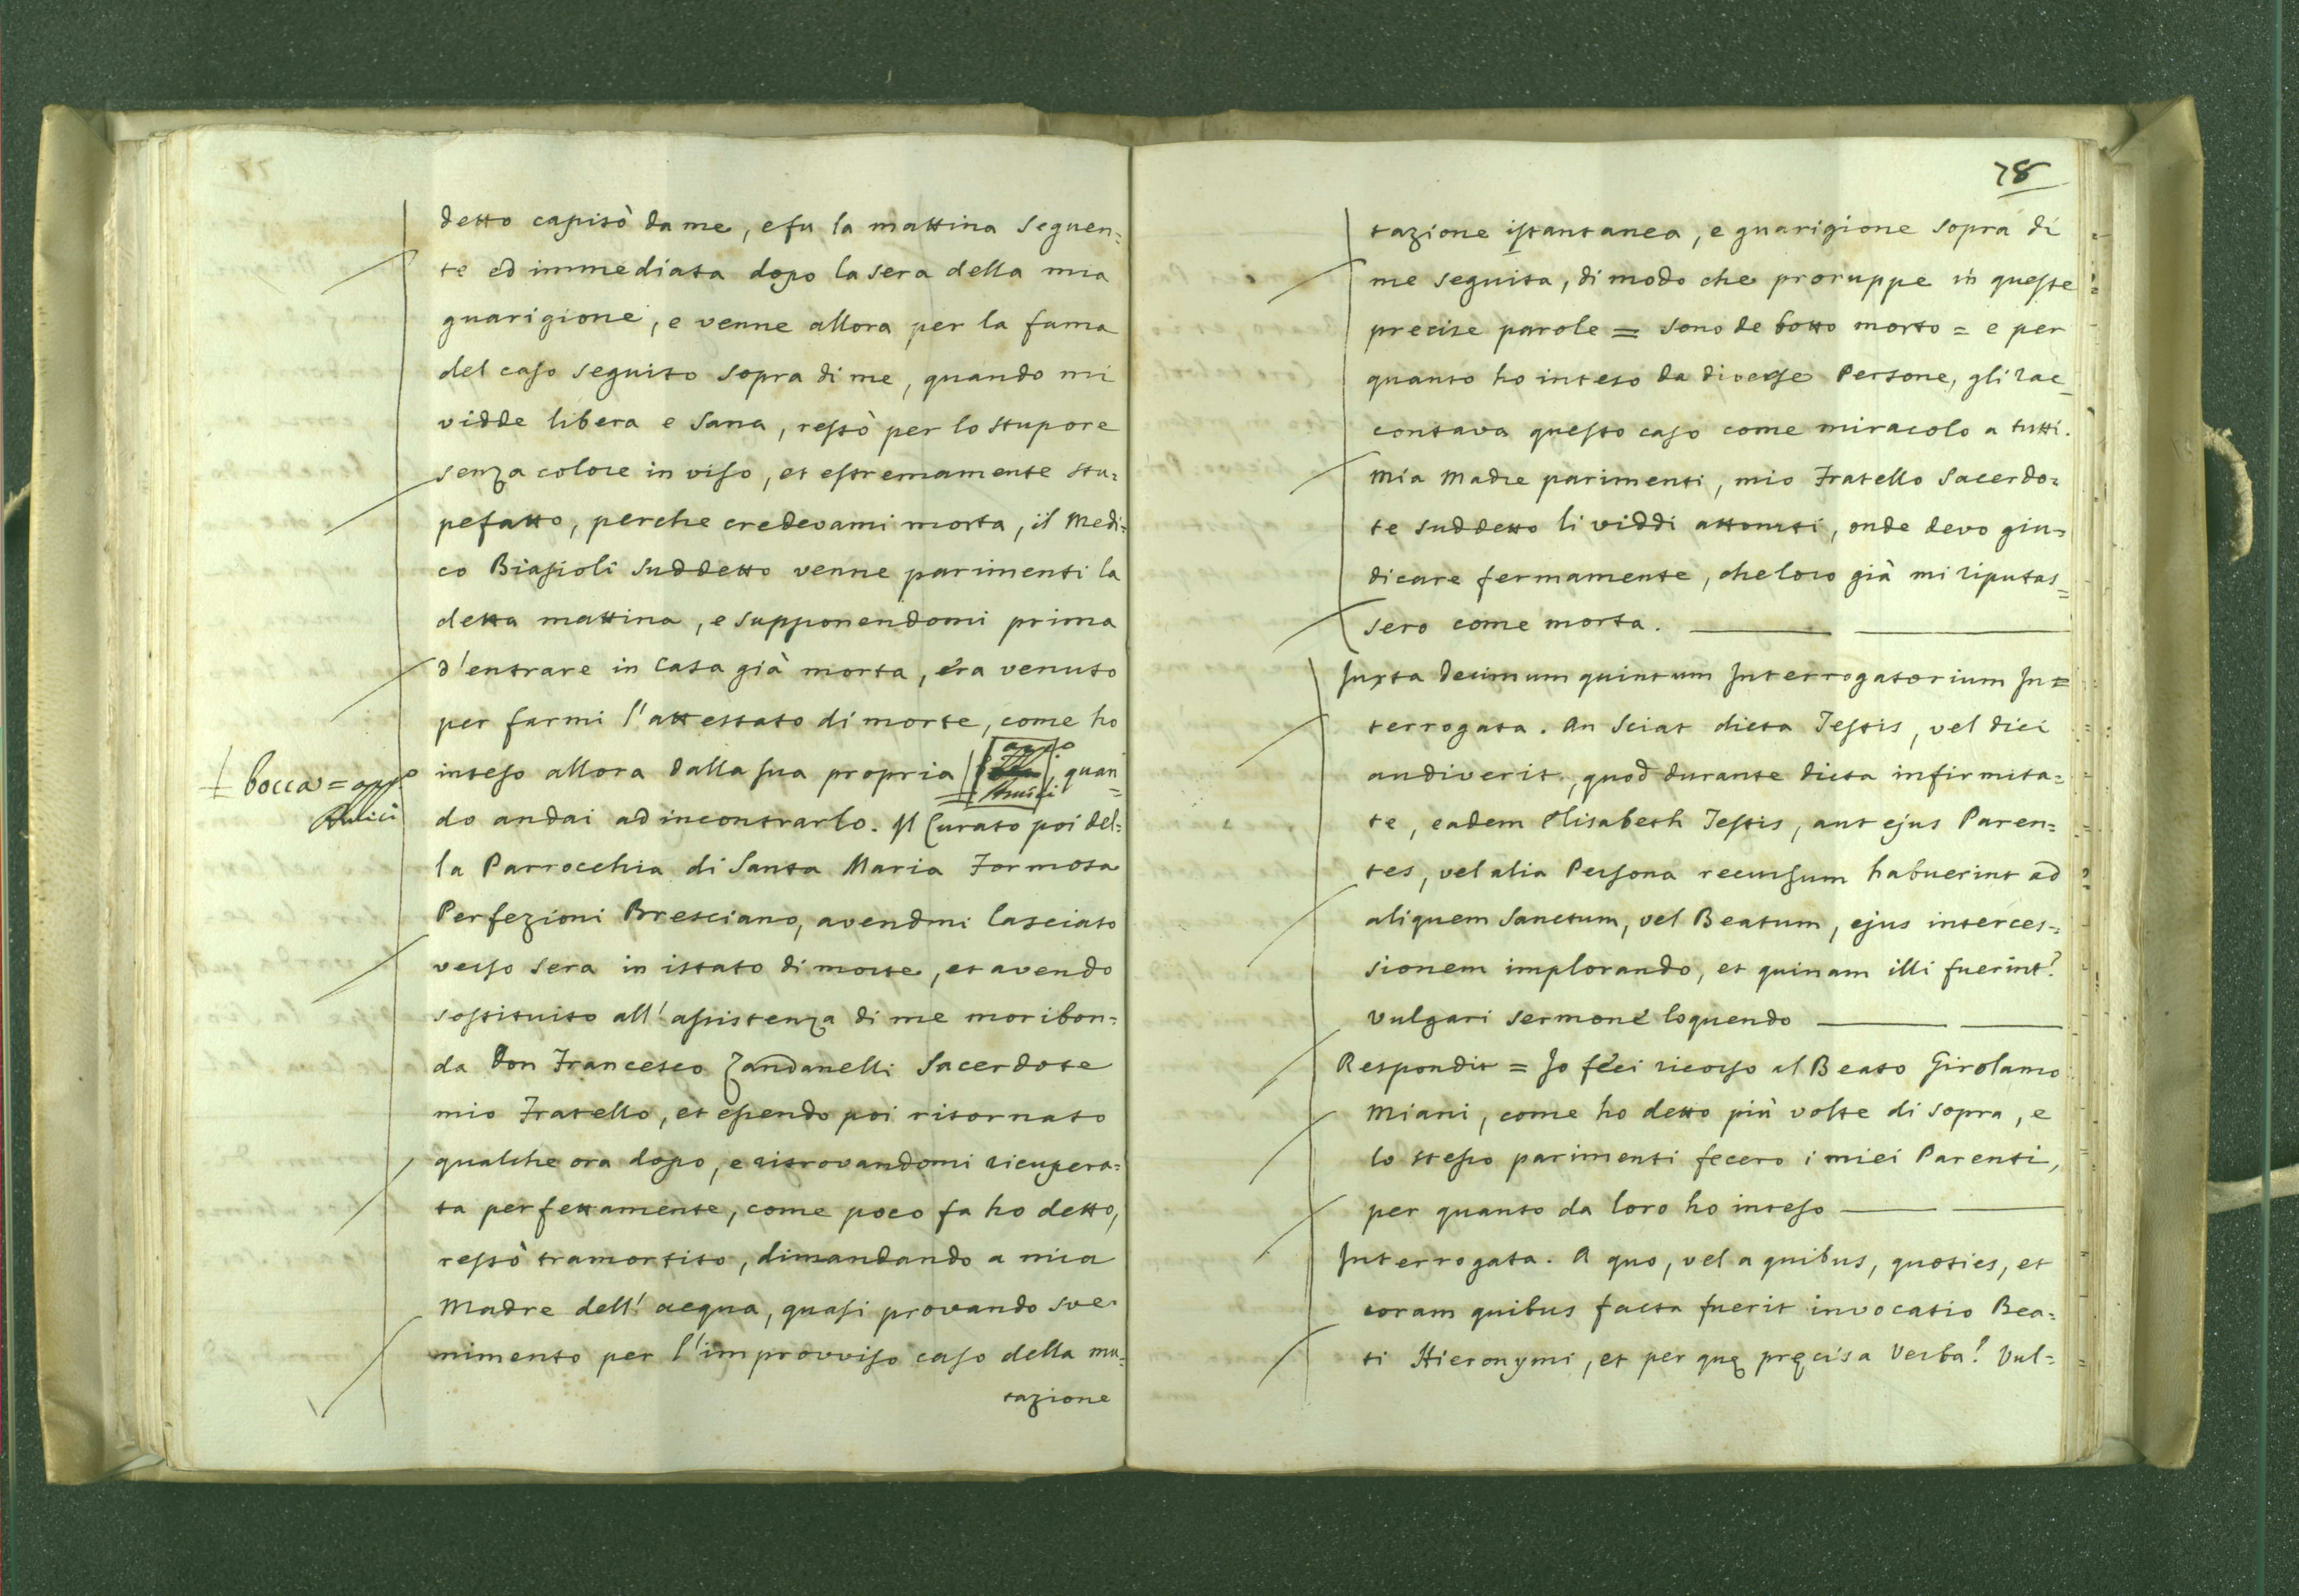 detto capitò da me, e fu la mattina seguen=
te ed immediata dopo la sera della mia
guarigione, e venne allora per la fama
del caso seguito sopra di me, quando mi
vidde libera e sana, restò per lo stupore
senza colore in viso, et estremamente stu=
pefatto, perche credevami morta, il Medi=
co Biasioli suddetto venne parimenti la
detta mattina, e supponendomi prima
d'entrare in Casa già morta, era venuto
per farmi l'attestato di morte, come ho
inteso allora dalla sua propria , quan=
bocca =
do andai ad incontrarlo. Il Curato poi del=
la Parrocchia di Santa Maria Formosa
Perfezioni Bresciano, avendmi lasciato
verso sera in istato di morte, et avendo
sostituito all'assistenza di me moribon=
da Don Francesco Zandanelli Sacerdote
mio Fratello, et essendo poi ritornato
qualche ora dopo, e ritrovandomi ricupera=
ta perfettamente, come poco fa ho detto,
restò tramortito, dimandando a mia
Madre dell'acqua, quasi provando sve=
nimento per l'improvviso caso della mu=
tazione
78
tazione istantanea, e guarigione sopra di
me seguita, di modo che proruppe in queste
precise parole = sono de botto morto = e per
quanto ho inteso da diverse Persone, gli rac=
contava questo caso come miracolo a tutti.
Mia Madre parimenti, mio Fratello Sacerdo=
te suddetto li viddi attoniti, onde devo giu=
dicare fermamente, che loro già mi riputas=
sero come morta.
Juxta decimum quintum Interrogatorium In=
terrogata. An sciat dicta Testis, vel dici
audiverit, quod durante dicta infirmita=
te, eadem Elisabeth Testis, aut ejus Paren=
tes, vel alia Persona recursum habuerint ad
aliquem Sanctum, vel Beatum, ejus interces=
sionem implorando, et quinam illi fuerint?
Vulgari sermone loquendo
Respondit = Io feci ricorso al Beato Girolamo
Miani, come ho detto più volte di sopra, e
lo stesso parimenti fecero i miei Parenti,
per quanto da loro ho inteso
Interrogata. A quo, vel a quibus, quoties, et
coram quibus facta fuerit invocatio Bea=
ti Hieronymi, et per quę pręcisa Verba? Vul=